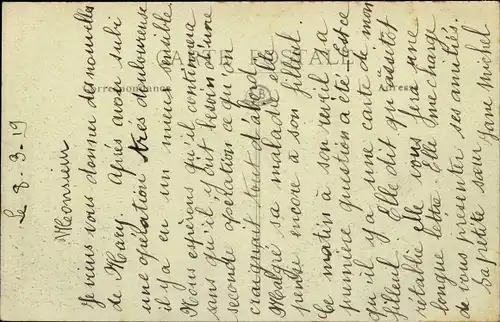 CARTE POSTALE
Correspondance
Adresse
Le 8-3-19
Monsieur
Je viens vous donner des nouvelles
de Mary. Après avoir subi
une opération très douloureuse
il y a eu un mieux sensible.
Nous espérons qu'il continuera
sans qu'il y ait besoin d'une
seconde opération ce qu'on
craignait tout d'abord.
Malgré sa maladie elle
pense encore à son filleul.
Ce matin à son reveil sa
première question a été Est-ce
qu'il y a une carte de mon
filleul. Elle dit qu'aussitot
rétablie elle vous fera une
longue lettre. Elle me charge
de vous présenter ses amitiés.
La petite sœur Jane Michel